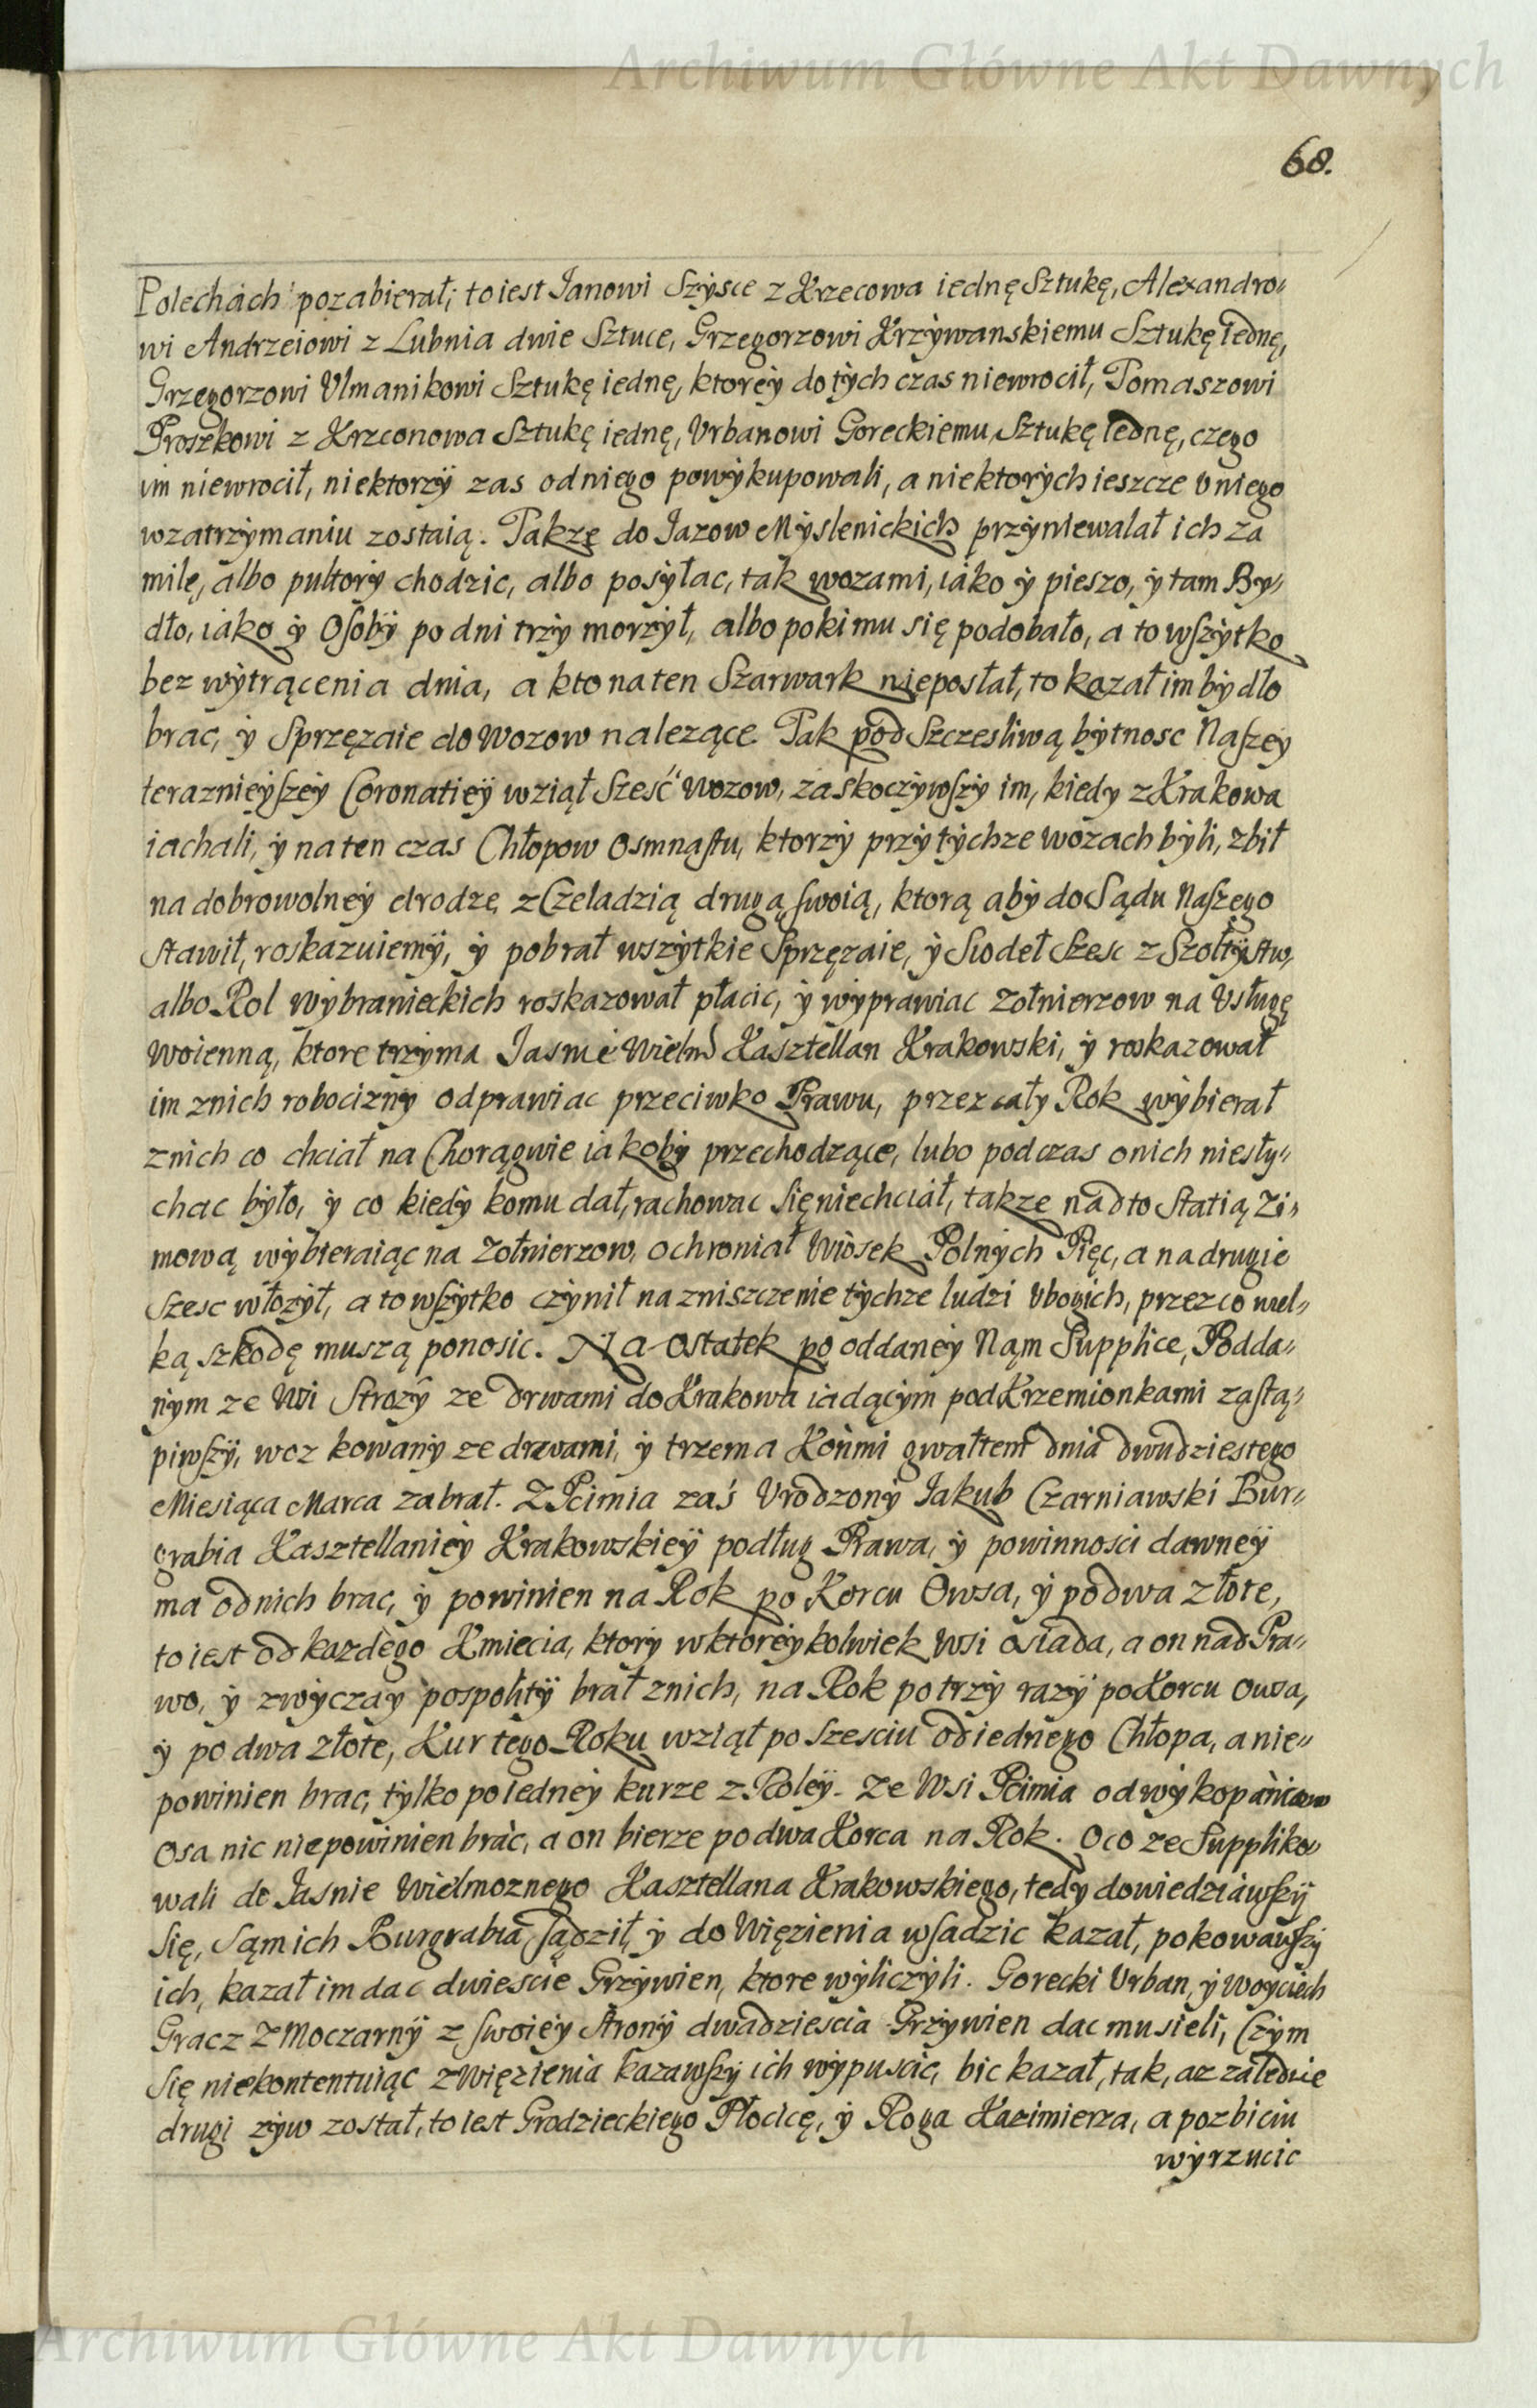 Archiwum Główne Akt Dawnych
68.
Polechach pozabierał; to iest Janowi Szysce z Krzecowa iednę Sztukę, Alexandro„
wi Andrzeiowi z Lubnia dwie Sztuce, Grzegorzowi Krzywanskiemu Sztukę Iednę,
Grzegorzowi Vlmanikowi Sztukę iednę, ktorey do tych czas niewrocił, Tomaszowi
Proszkowi z Krzconowa Sztukę iednę, Vrbanowi Goreckiemu, Sztukę Iednę, czego
im niewrocił, niektorzy zas od niego powykupowali, a niektorych ieszcze v niego
w zatrzymaniu zostaią. Takze do Jazow Myslenickich przyniewalał ich za
milę, albo pultory chodzic, albo posyłac, tak wozami, iako y pieszo, y tam By„
dło, iako y Osoby po dni trzy morzył, albo poki mu się podobało, a to wszytko
bez wytrącenia dnia, a kto na ten Szarwark nieposłał, to kazał im bydło
brac, y Sprzęzaie do Wozow nalezące. Tak pod Szczesliwą bytnosc Naszey
teraznieyszey Coronatiey wziął Sześć Wozow, zaskoczywszy im, kiedy z Krakowa
iachali, y na ten czas Chłopow Osmnastu, ktorzy przy tychze wozach byli, zbił
na dobrowolney drodze z Czeladzią drugą swoią, ktorą aby do Sądu Naszego
Stawił, roskazuiemy, y pobrał wszytkie Sprzęzaie, y Siodeł Szesc z Szołtystw,
albo Rol Wybranieckich roskazował płacic, y wyprawiac Zołnierzow na Vsługę
Woienną, ktore trzyma Jasnie Wielm Kasztellan Krakowski, y roskazował
im znich robocizny odprawiac przeciwko Prawu, przez cały Rok wybierał
znich co chciał na Chorągwie iakoby przechodzące, lubo podczas onich niesły„
chac było, y co kiedy komu dał, rachowac się niechciał, takze nadto Statią Zi„
mową wybieraiąc na Zołnierzow, ochroniał Wiosek Polnych Pięc, a na drugie
Szesc włozył, a to wszytko czynił na zniszczenie tychze ludzi Vbogich, przez co wiel„
ką szkodę muszą ponosic. Na Ostatek po oddaney Nąm Supplice, Podda„
nym ze Wsi Strozy ze drwami do Krakowa iadącym pod Krzemionkami zastą„
piwszy, woz kowany ze drwami, y trzema Końmi gwałtem dnia dwudziestego
Miesiąca Marca zabrał. Z Pcimia zaś Vrodzony Jakub Czarniawski Bur„
grabia Kasztellaniey Krakowskiey podług Prawa, y powinnosci dawney
ma odnich brac, y powinien na Rok po Korcu Owsa, y podwa złote,
to iest od kazdego Kmiecia, ktory w ktoreykolwiek Wsi osiada, a on nad Pra„
wo, y zwyczay pospolity brał znich, na Rok po trzy razy po Korcu owsa,
y po dwa złote, Kur tego Roku wziął po Szesciu od iednego Chłopa, a nie„
powinien brac, tylko po iedney kurze z Roley. Ze Wsi Pcimia od wykopanicow
Osa nic niepowinien brac, a on bierze po dwa Korca na Rok. Oco ze Suppliko„
wali do Jasnie Wielmoznego Kasztellana Krakowskiego, tedy dowiedziawszy
Się, Sąm ich Burgrabia sądził, y do Więzienia wsadzic kazał, pokowawszy
ich, kazał im dac dwiescie Grzywien, ktore wyliczyli. Gorecki Vrban, y Woyciech
Gracz z Moczarny z swoiey strony dwadziescia Grzywien dac musieli, Czym
Się niekontentuiąc z Więzienia kazawszy ich wypuscic, bic kazał, tak, az zaledwie
drugi zyw został, to iest Grodzieckiego Płocicę, y Roga Kazimierza, a pozbiciu
wyrzucic
Archiwum Główne Akt Dawnych